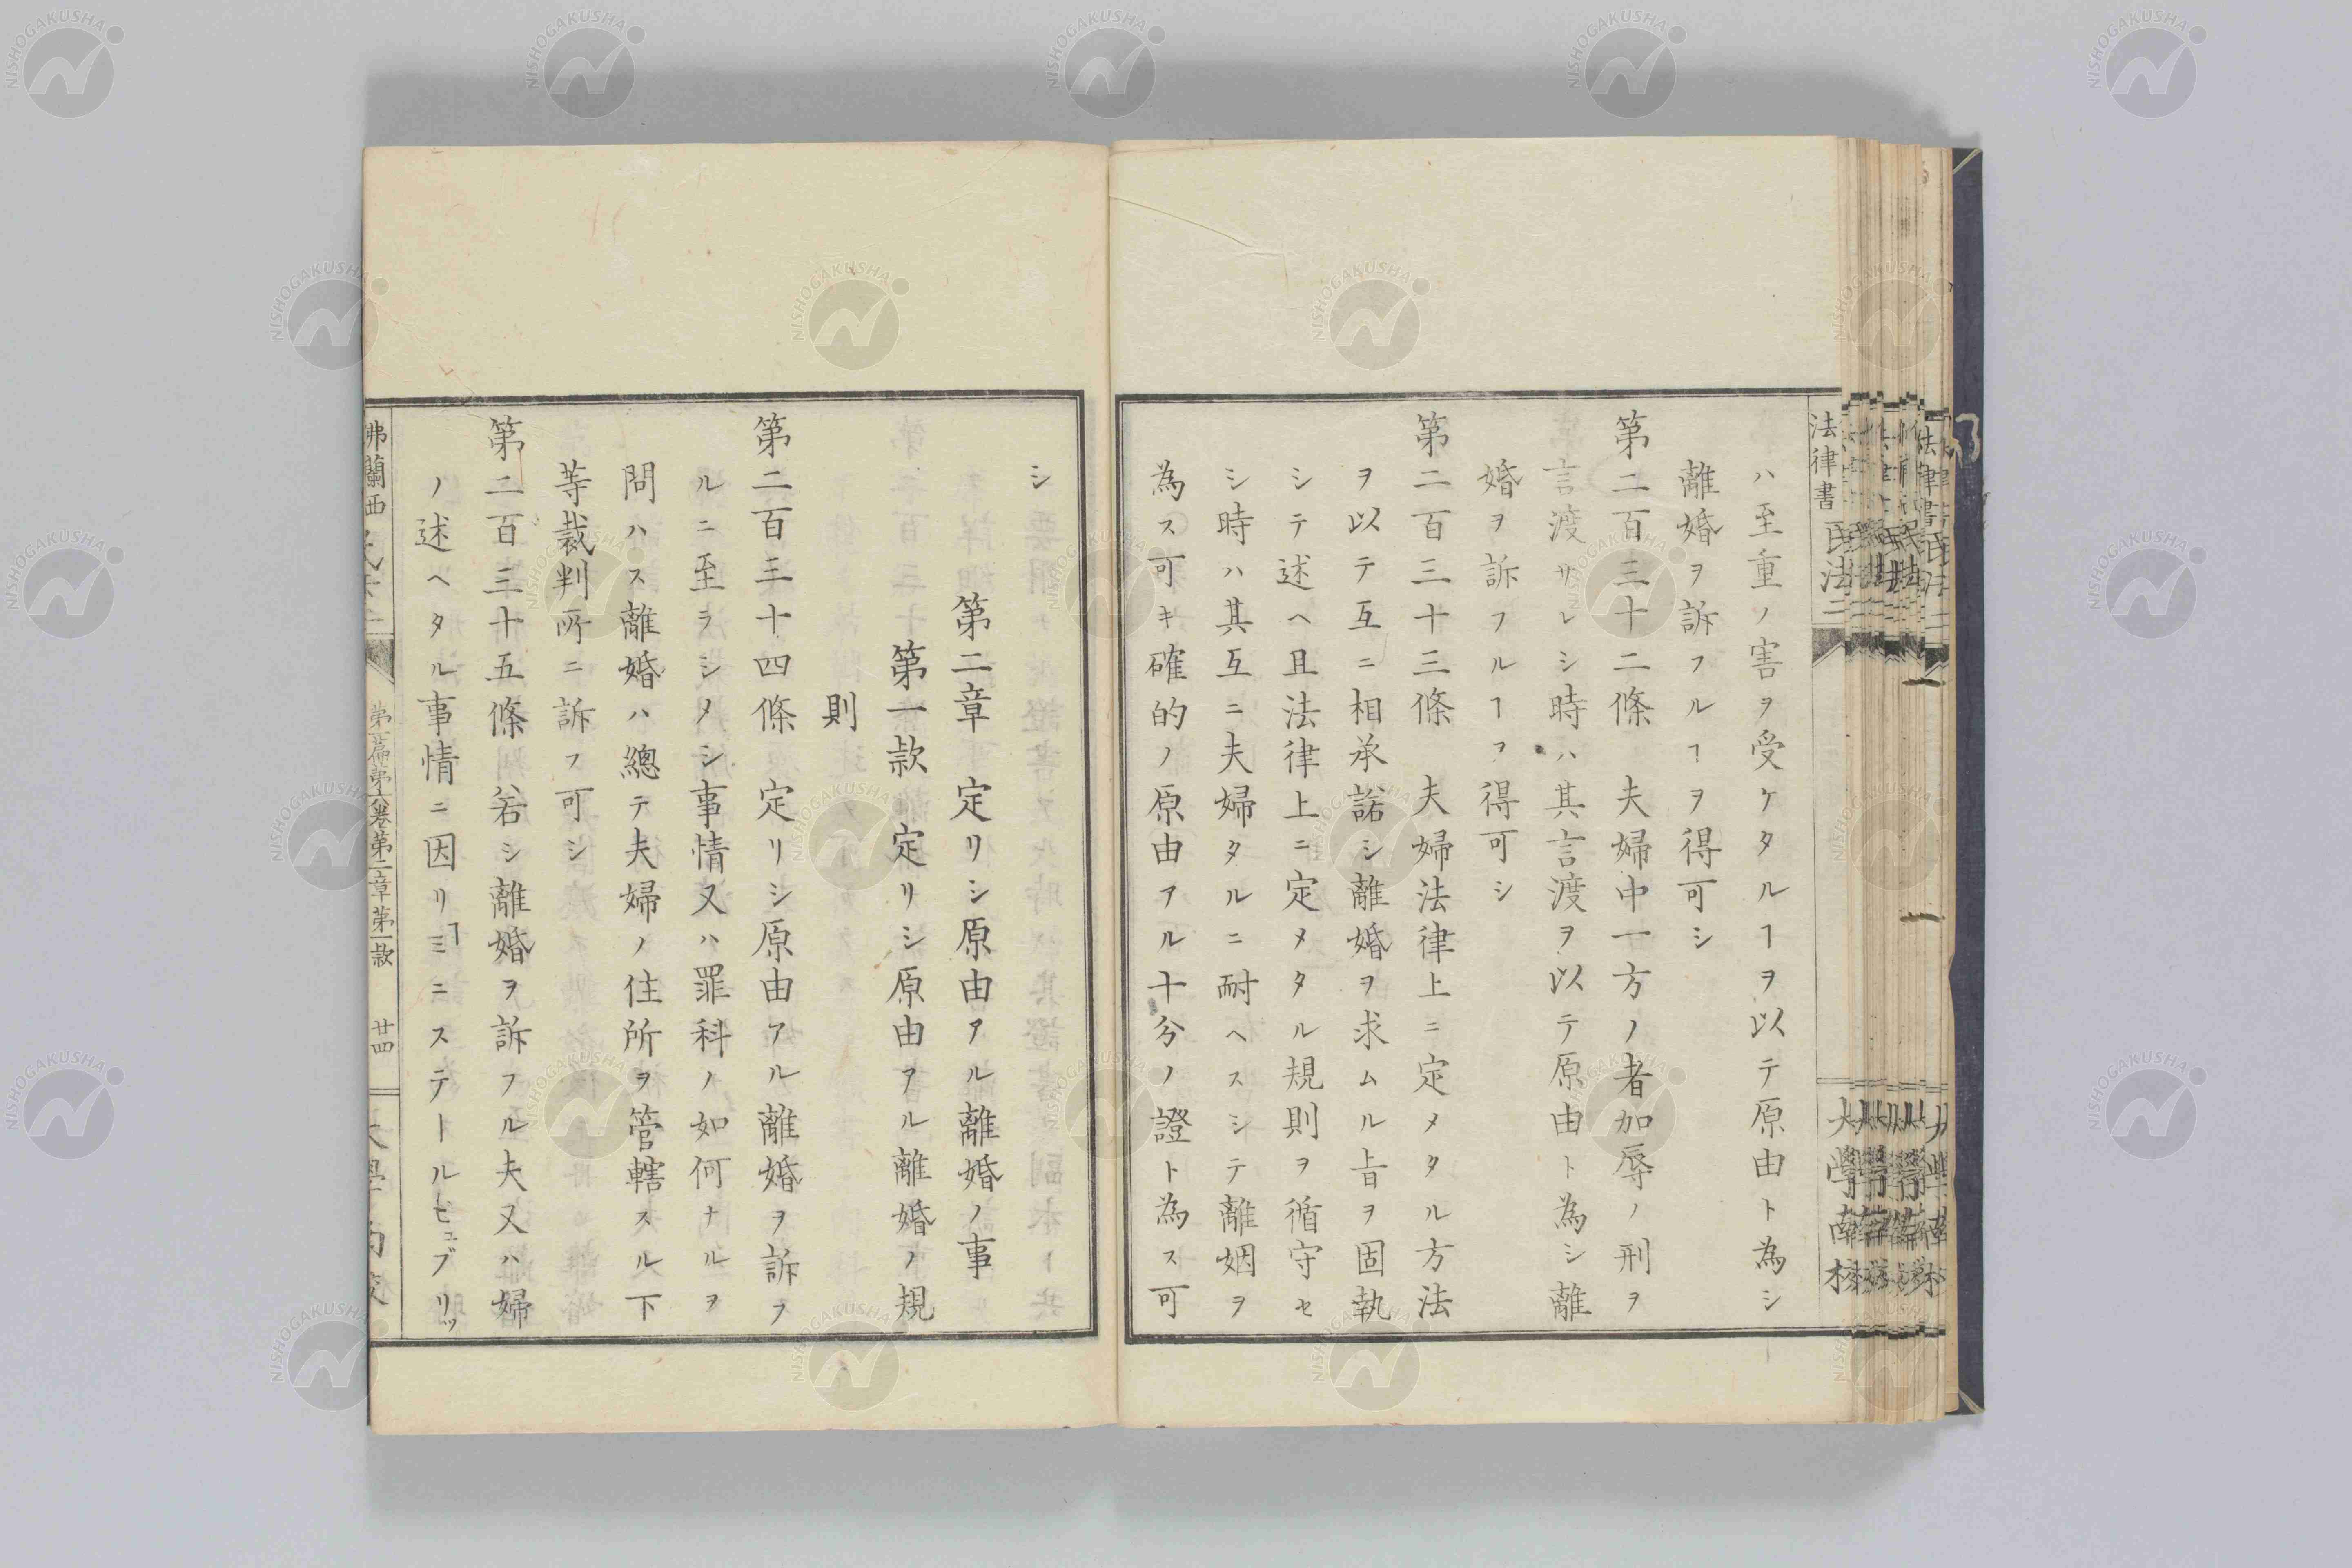 法律書 民法二
ハ至重ノ害ヲ受ケタルヿヲ以テ原由ト為シ
離婚ヲ訴フルヿヲ得可シ
第二百三十二條 夫婦中一方ノ者加辱ノ刑ヲ
言渡サレシ時ハ其言渡ヲ以テ原由ト為シ離
婚ヲ訴フルヿヲ得可シ
第二百三十三條 夫婦法律上ニ定メタル方法
ヲ以テ互ニ相承諾シ離婚ヲ求ムル旨ヲ固執
シテ述ヘ且法律上ニ定メタル規則ヲ循守セ
シ時ハ其互ニ夫婦タルニ耐ヘスシテ離姻ヲ
為ス可キ確的ノ原由アル十分ノ證ト為ス可
大學南校
シ
第二章 定リシ原由アル離婚ノ事
第一款 定リシ原由アル離婚ノ規
則
第二百三十四條 定リシ原由アル離婚ヲ訴フ
ルニ至ラシメシ事情又ハ罪科ノ如何ナルヲ
問ハス離婚ハ總テ夫婦ノ住所ヲ管轄スル下
等裁判所ニ訴フ可シ
第二百三十五條 若シ離婚ヲ訴フル夫又ハ婦
ノ述ヘタル事情ニ因リミニステールピュブリッ
佛蘭西
第一篇第六卷第二章第一款
廿四
NISHOGAKUSHA